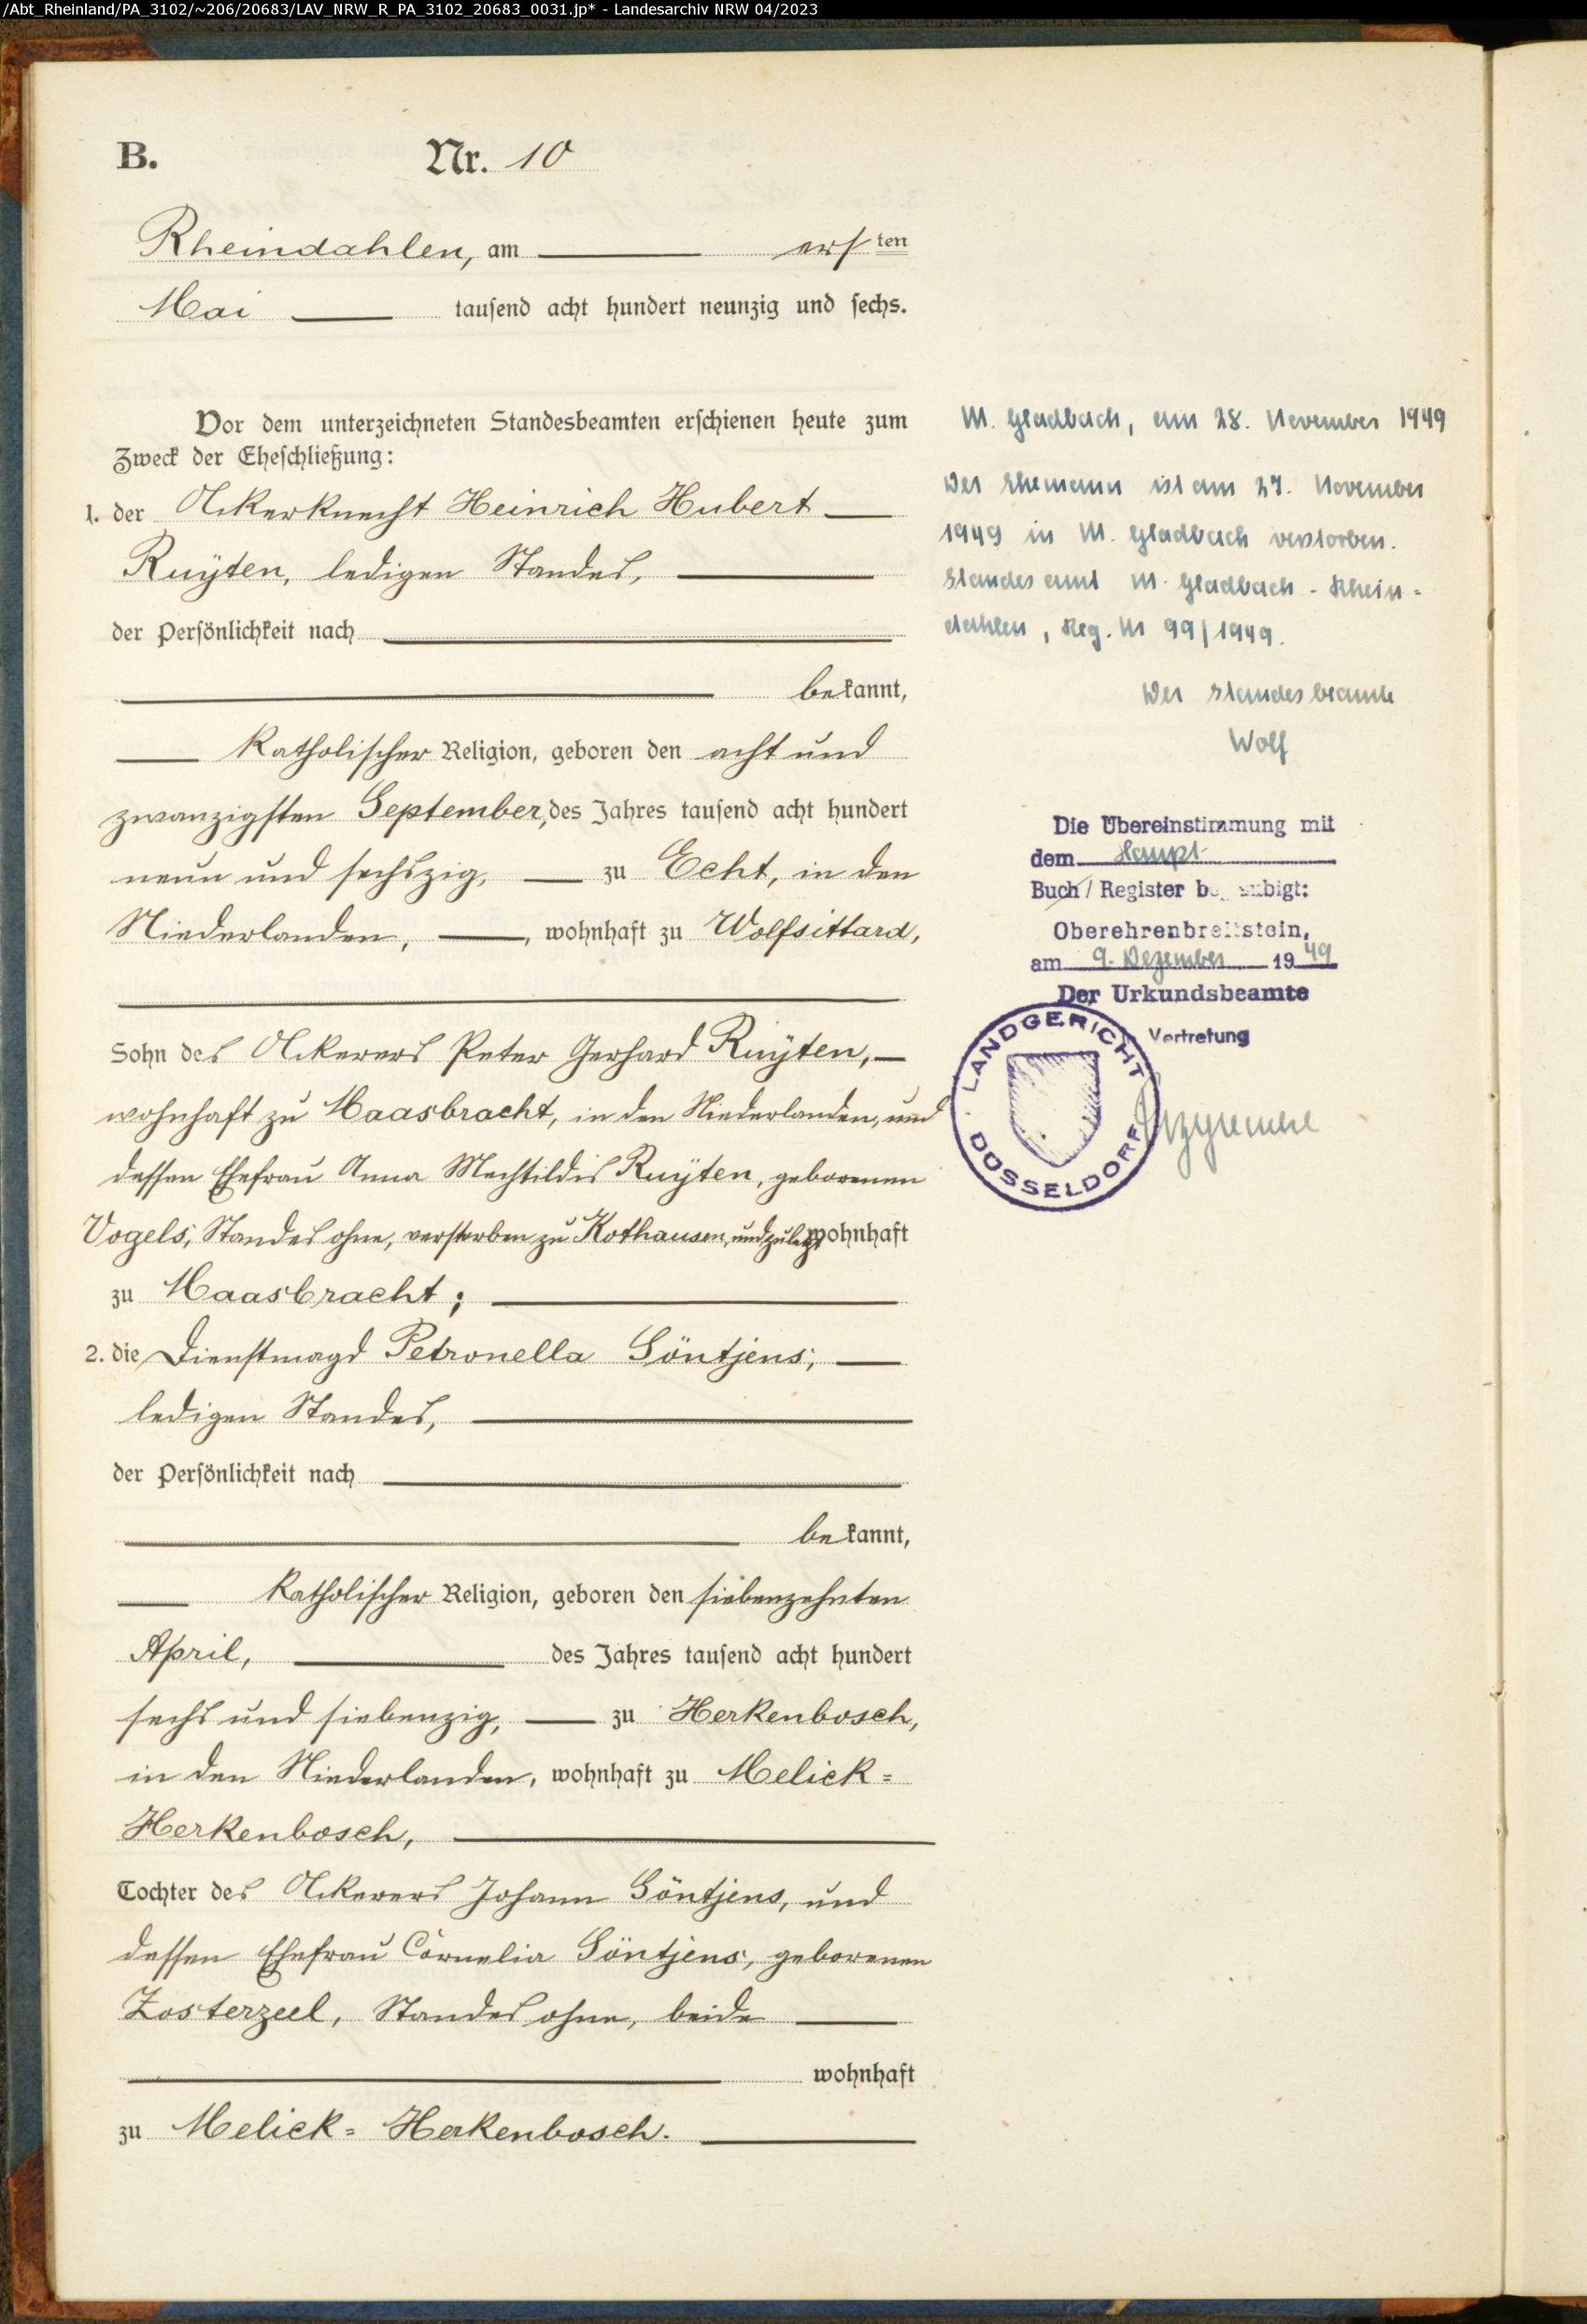 /Abt_Rheinland/PA_3102/~206/20683/LAV_NRW_R_PA_3102_20683_0031.jp* - Landesarchiv NRW 04/2023
B. Nr. 10
Rheindahlen, am ersten
Mai tausend acht hundert neunzig und sechs.
Vor dem unterzeichneten Standesbeamten erschienen heute zum
Zweck der Eheschließung:
1. der Ackerknecht Heinrich Hubert
Ruÿten, ledigen Standes,
der Persönlichkeit nach
bekannt,
katholischer Religion, geboren den acht und
zwanzigsten September, des Jahres tausend acht hundert
neun und sechszig, zu Echt, in den
Niederlanden, wohnhaft zu Wolfsittard,
Sohn des Ackerers Peter Gerhard Ruÿten,
wohnhaft zu Maasbracht, in den Niederlanden, und
dessen Ehefrau Anna Mechtildis Ruÿten, geborenen
Vogels, Standes ohne, verstorben zu Kothausen, und zuletzt wohnhaft
zu Maasbracht;
2. die Dienstmagd Petronella Söntjens,
ledigen Standes,
der Persönlichkeit nach
bekannt,
katholischer Religion, geboren den siebenzehnten
April, des Jahres tausend acht hundert
sechs und siebenzig, zu Herkenbosch,
in den Niederlanden, wohnhaft zu Melick=
Herkenbosch,
Tochter des Ackerers Johann Söntjens, und
dessen Ehefrau Cornelia Söntjens, geborenen
Zosterzeel, Standes ohne, beide
wohnhaft
zu Melick= Herkenbosch.
M. Gladbach, am 28. November 1949
Der Ehemann ist am 27. November
1949 in M. Gladbach verstorben.
Standesamt M. Gladbach - Rhein=
dahlen, Reg. Nr 99/1949.
Der Standesbeamte
Wolf
Die Übereinstimmung mit
dem Haupt
Buch / Register beglaubigt:
Oberehrenbreitstein,
am 9. Dezember 1949
Der Urkundsbeamte
Vertretung
LANDGERICHT
DÜSSELDORF